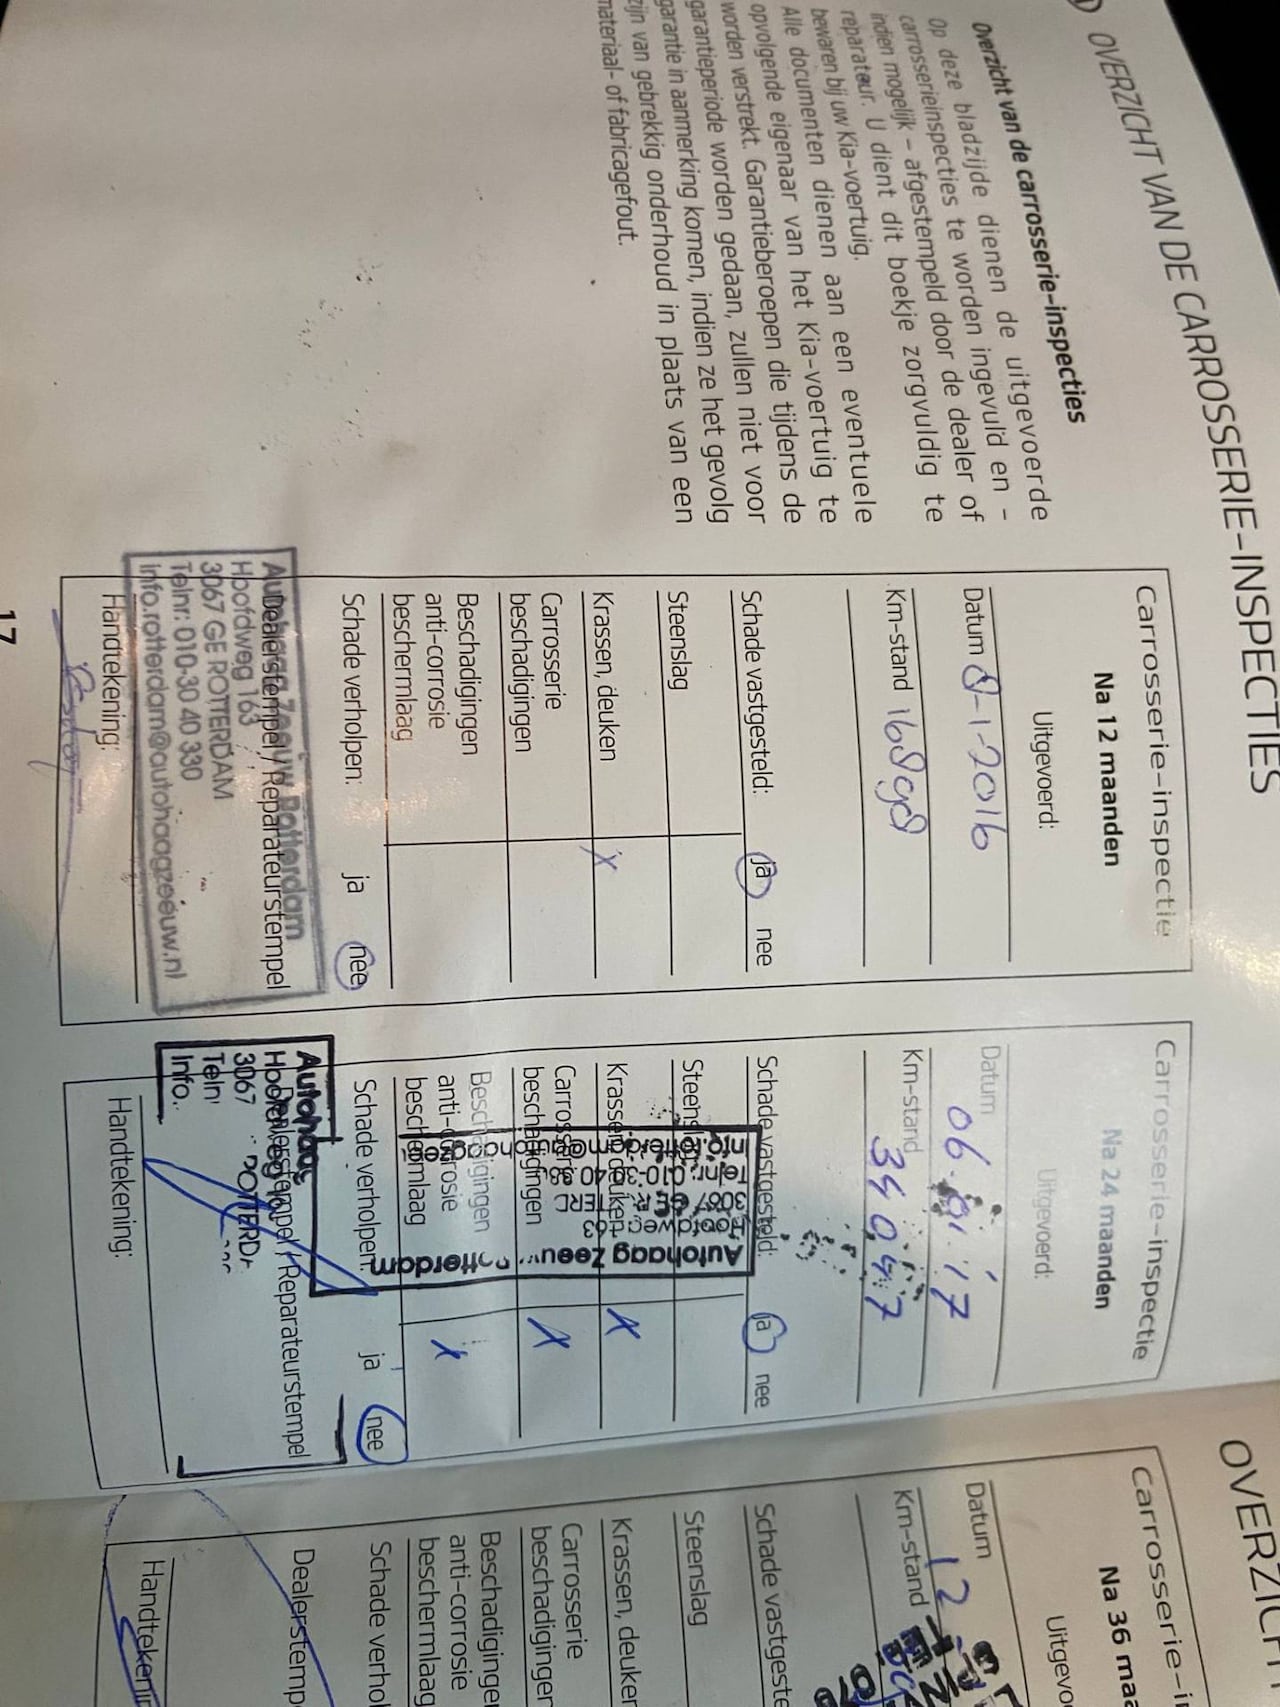 OVERZICHT VAN DE CARROSSERIE-INSPECTIES
Overzicht van de carrosserie-inspecties
Op deze bladzijde dienen de uitgevoerde
carrosserieinspecties te worden ingevuld en -
indien mogelijk - afgestempeld door de dealer of
reparateur. U dient dit boekje zorgvuldig te
bewaren bij uw Kia-voertuig.
Alle documenten dienen aan een eventuele
opvolgende eigenaar van het Kia-voertuig te
worden verstrekt. Garantieberoepen die tijdens de
garantieperiode worden gedaan, zullen niet voor
garantie in aanmerking komen, indien ze het gevolg
zijn van gebrekkig onderhoud in plaats van een
materiaal- of fabricagefout.
Carrosserie-inspectie
Na 12 maanden
Uitgevoerd:
Datum 8-1-2016
Km-stand 16898
Schade vastgesteld: ja nee
Steenslag
Krassen, deuken x
Carrosserie
beschadigingen
Beschadigingen
anti-corrosie
beschermlaag
Schade verholpen: ja nee
Dealerstempel / Reparateurstempel
Autohaag Zeeuw Rotterdam
Hoofdweg 163
3067 GE ROTTERDAM
Telnr: 010-30 40 330
Info.rotterdam@autohaagzeeuw.nl
Handtekening:
17
Carrosserie-inspectie
Na 24 maanden
Uitgevoerd:
Datum 06.01.'17
Km-stand 34047
Schade vastgesteld: ja nee
Steenslag
Krassen, deuken x
Carrosserie
beschadigingen x
Beschadigingen
anti-corrosie
beschermlaag x
Schade verholpen: ja nee
Autohaag Zeeuw Rotterdam
Dealerstempel / Reparateurstempel
Autohaag
3067
Teln
Info.
Handtekening:
OVERZICH
Carrosserie-i
Na 36 maa
Uitgevo
Datum 12
Km-stand
Schade vastgeste
Steenslag
Krassen, deuken
Carrosserie
beschadigingen
Beschadigingen
anti-corrosie
beschermlaag
Schade verhol
Dealerstemp
Handtekenin